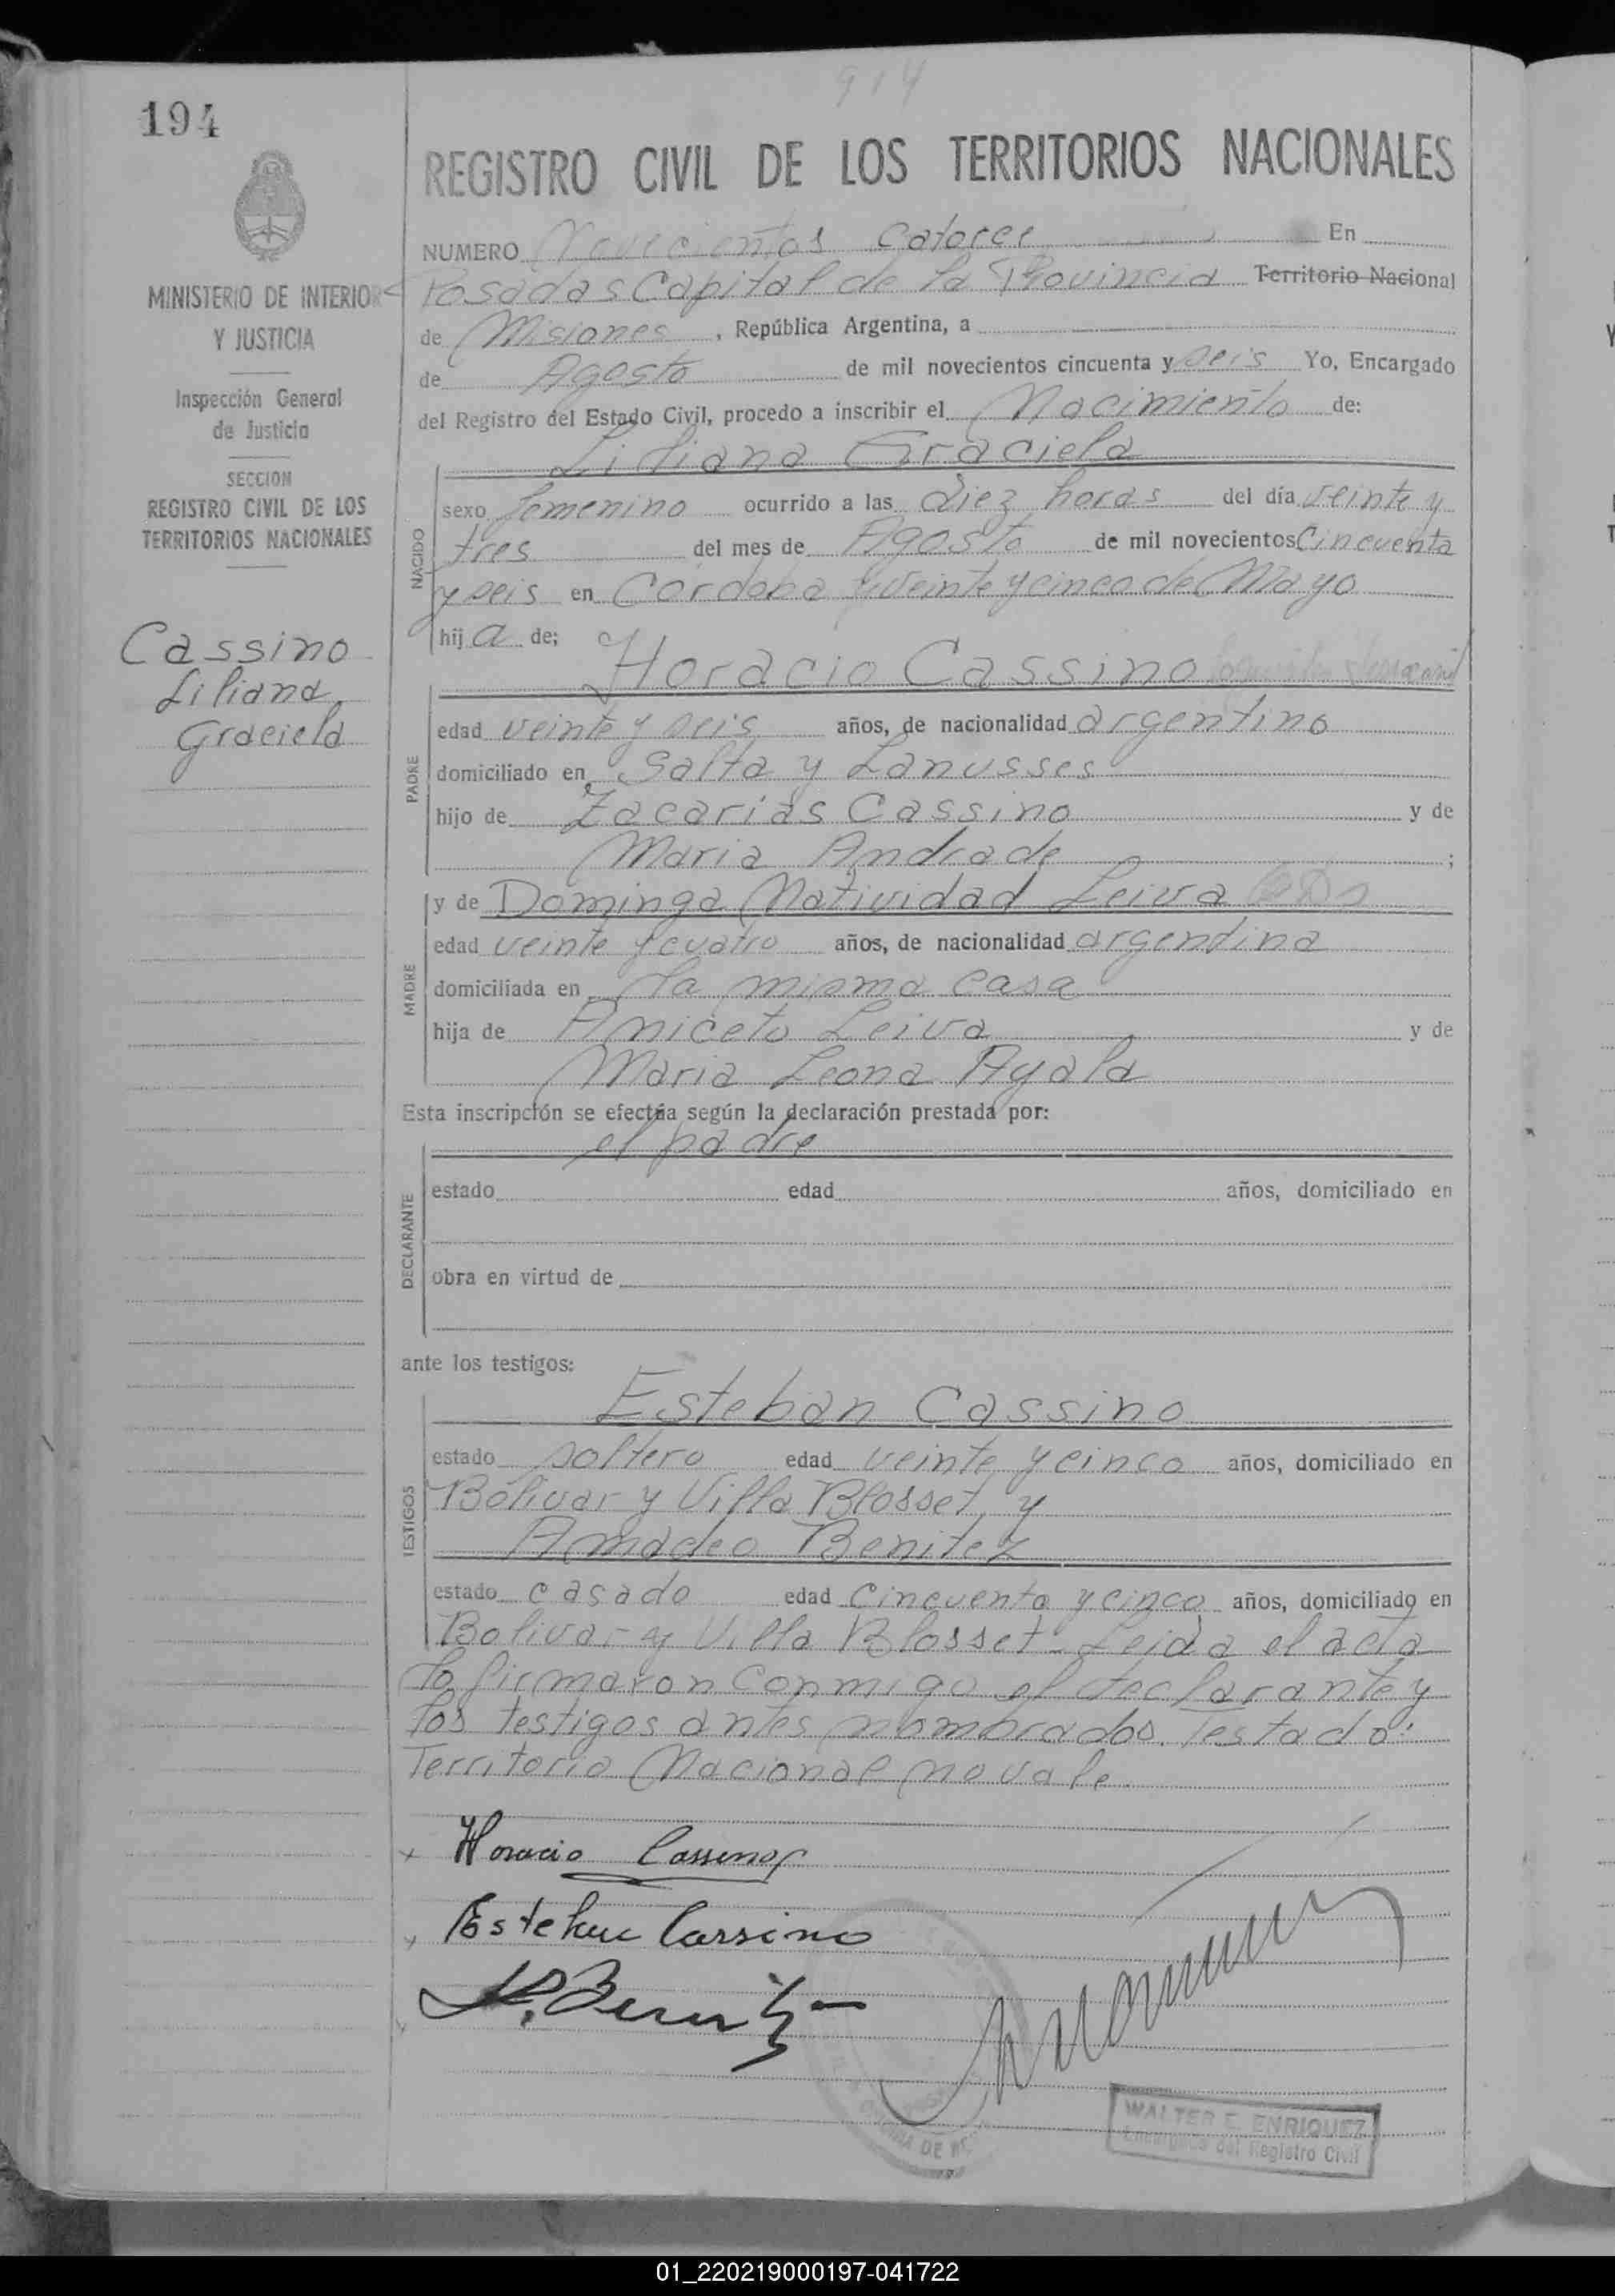 914
194
REGISTRO CIVIL DE LOS TERRITORIOS NACIONALES
MINISTERIO DE INTERIOR
Y JUSTICIA
Inspección General
de Justicia
SECCION
REGISTRO CIVIL DE LOS
TERRITORIOS NACIONALES
Cassino
Liliana
Graciela
NUMERO Novecientos Catorce En
Posadas Capital de la Provincia Territorio Nacional
de Misiones, República Argentina, a
de Agosto de mil novecientos cincuenta y seis Yo, Encargado
del Registro del Estado Civil, procedo a inscribir el Nacimiento de:
NACIDO
Liliana Graciela
sexo femenino ocurrido a las diez horas del día veinte y
tres del mes de Agosto de mil novecientos Cincuenta
y seis en Cordoba y veinte y cinco de Mayo
hij a de:
PADRE
Horacio Cassino
edad veinte y seis años, de nacionalidad argentino
domiciliado en Salta y Lanusses
hijo de Zacarias Cassino y de
Maria Andrade;
MADRE
y de Dominga Natividad Leiva
edad veinte y cuatro años, de nacionalidad argentina
domiciliada en la misma casa
hija de Aniceto Leiva y de
Maria Leona Ayala
Esta inscripción se efectúa según la declaración prestada por:
DECLARANTE
el padre
estado edad años, domiciliado en
obra en virtud de
ante los testigos:
TESTIGOS
Esteban Cassino
estado soltero edad veinte y cinco años, domiciliado en
Bolivar y Villa Blosset y
Amadeo Benitez
estado casado edad Cincuenta y cinco años, domiciliado en
Bolivar y Villa Blosset - Leida el acta
la firmaron conmigo el declarante y
los testigos antes nombrados. Testado:
Territorio Nacional no vale.
Horacio Cassino
Esteban Cassino
A. Benitez
WALTER E. ENRIQUEZ
Encargado del Registro Civil
01_220219000197-041722